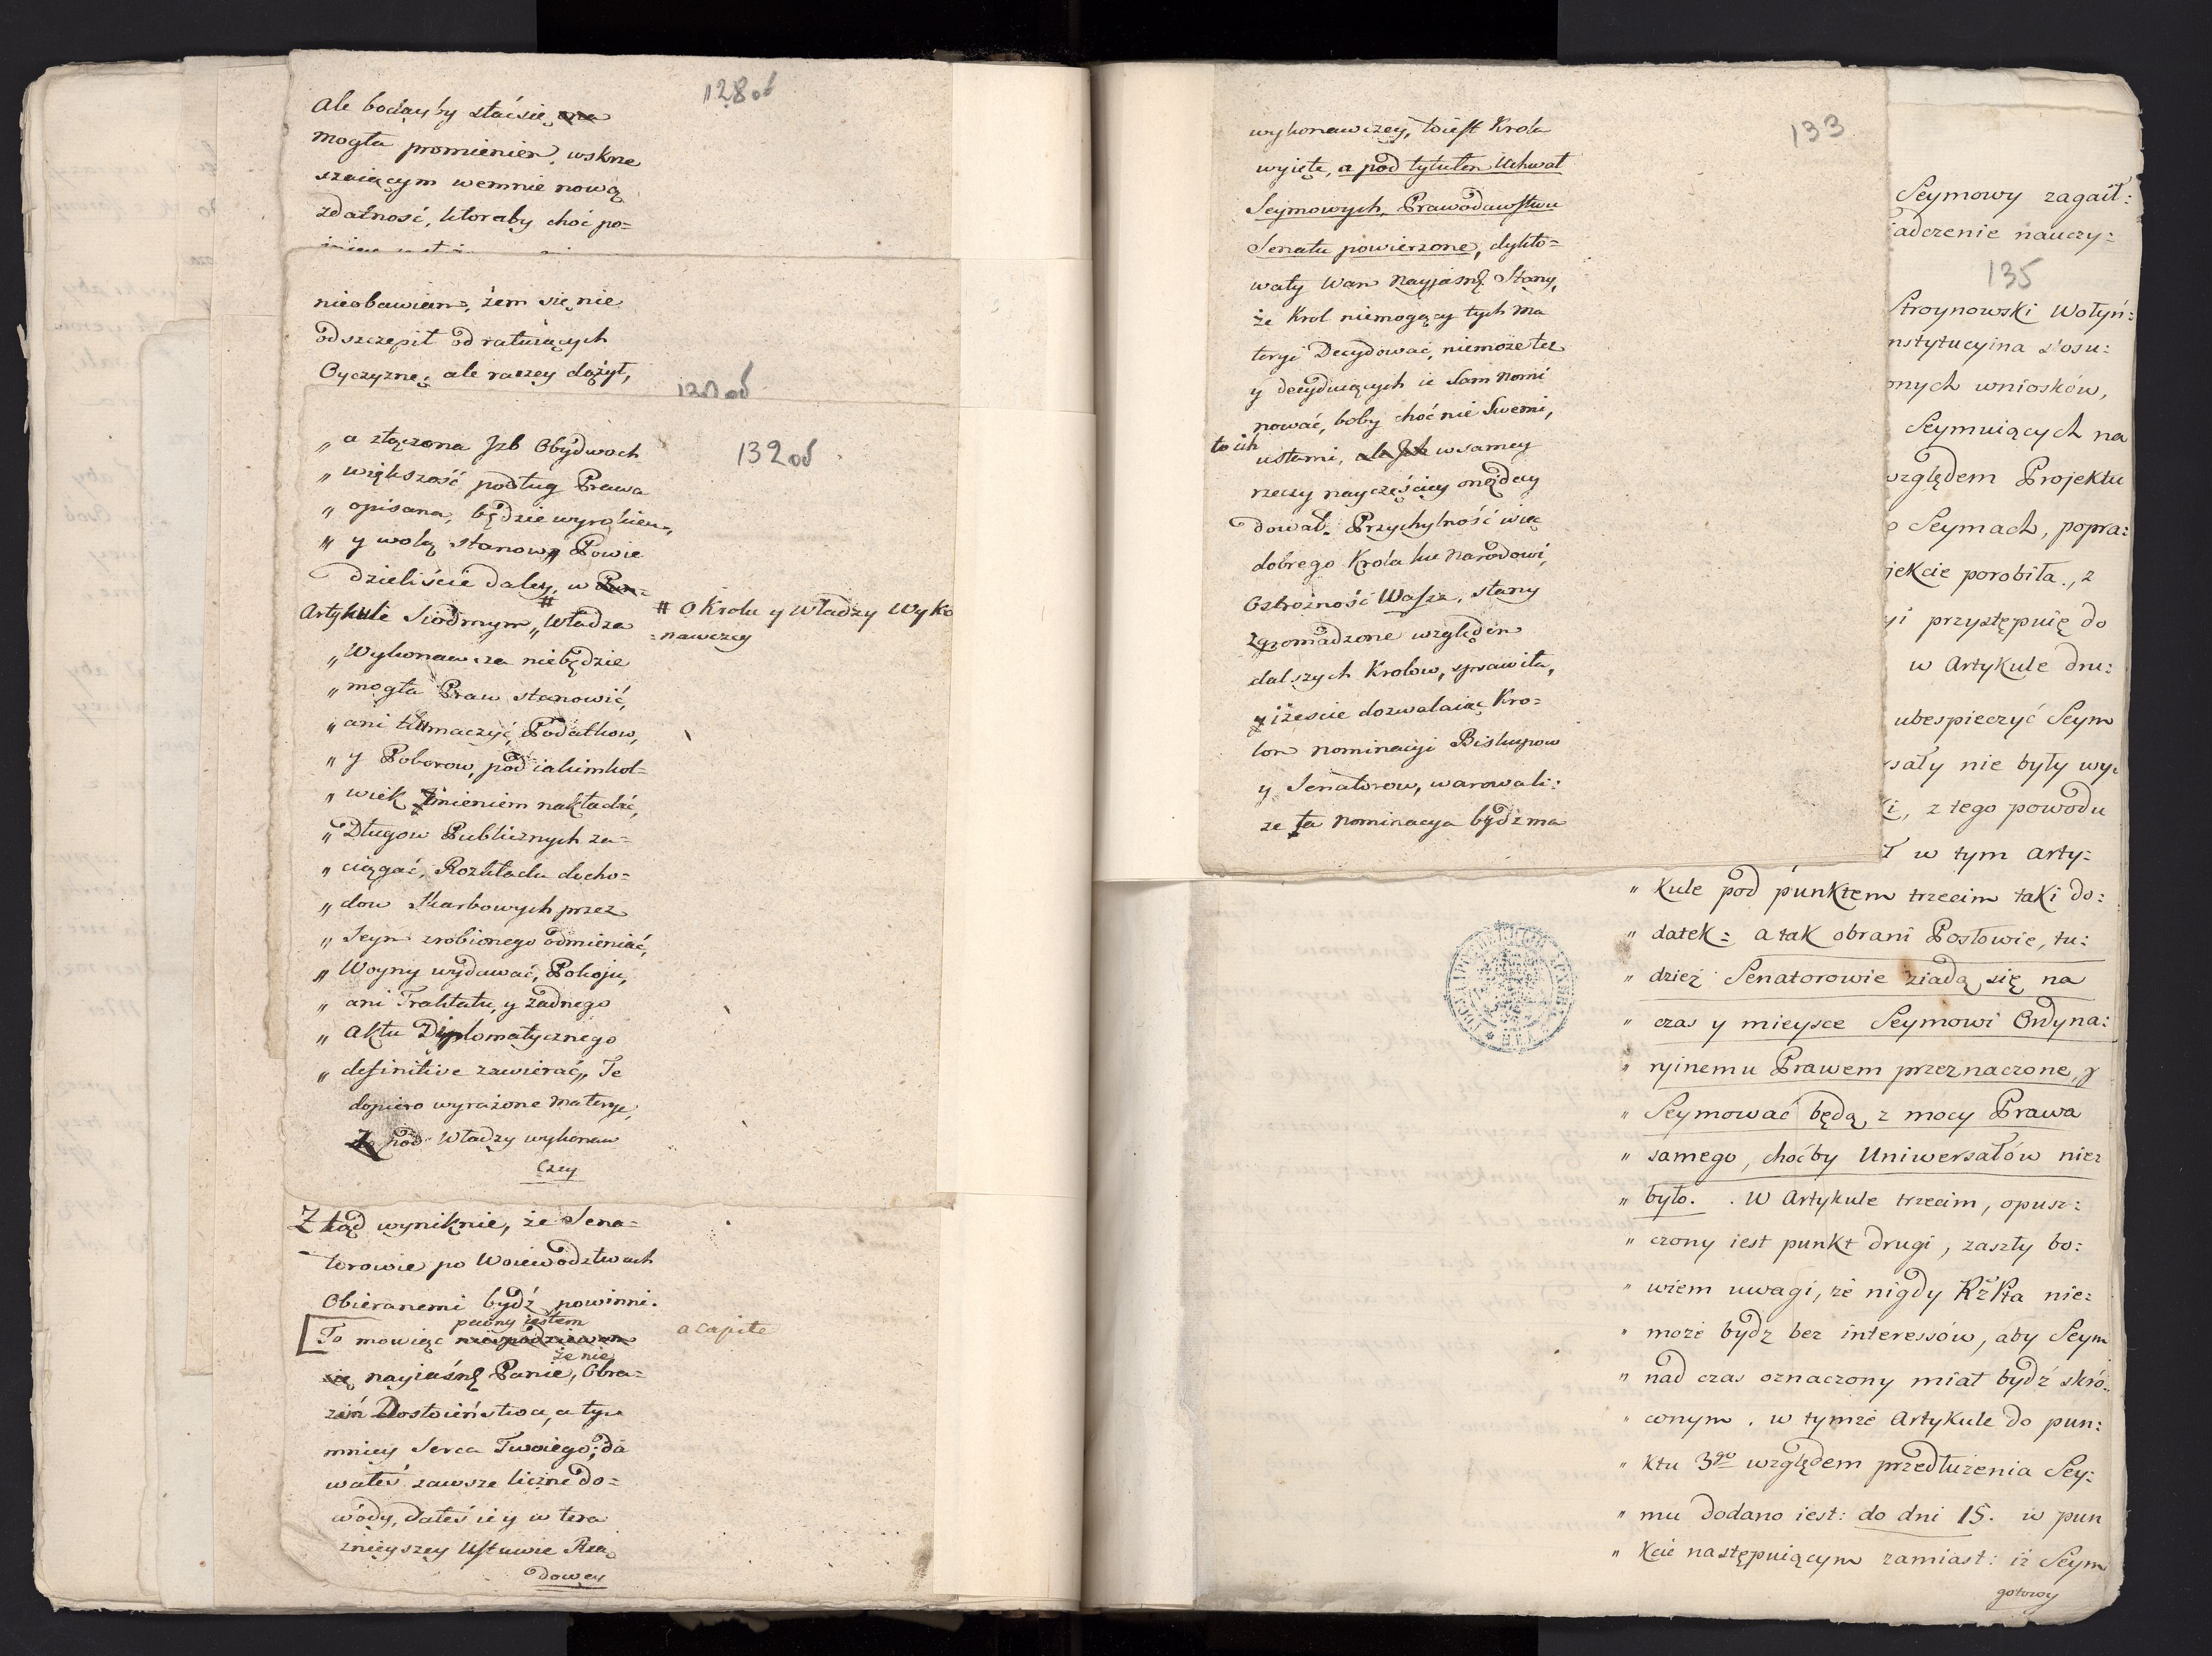 128 od
Ale bodayby stać się ona
mogła promieniem wskrze
szaiącym wemnie nową
zdatność, ktoraby choć po-
nieobawiam, żem się nie
odszczepił od ratuiących
Oyczyznę, ale raczey dążył,
130 od
132 od
„ a złączona Jzb Obydwoch
„ większość podług Prawa
„ opisana, będzie wyrokiem,
„ y wolą stanow„ Powie
dzieliście daley, w Pun-
Artykule Siodmym # „Władza
# O Krolu y Władzy Wyko
-nawczey
„ Wykonawcza niebędzie
„ mogła Praw stanowić,
„ ani tłumaczyć, Podatkow,
„ y Poborow, pod iakimkol-
„ wiek Imieniem nakładać,
„ Długow Publicznych za-
„ ciągać, Rozkładu docho-
„ dow Skarbowych przez
„ Seym zrobionego odmieniać,
„ Woyny wydawać, Pokoju,
„ ani Traktatu, y żadnego
„ Aktu Diplomatycznego
„ definitive zawierać„ Te
dopiero wyrażone materye,
z pod Władzy wykonaw
czey
Ztąd wyniknie, że Sena-
torowie po Woiewodztwach
Obieranemi bydź powinni.
pewny iestem
To mowiąc niespodziewam a capite
że nie
się nayiaśnę Panie, Obra-
ził Dostoieństwa, a tym
mniey Serca Twoiego; da
wałeś zawsze liczne do-
wody, dałeś ie y w tera
znieyszey Ustawie Rzą
dowey
133
wykonawczey, to iest Krola
wyięte, a pod tytułem Uchwał
Seymowych, Prawodawstwu
Senatu powierzone, dykto-
wały Wam Nayjasnę Stany,
że Krol niemogący tych ma
teryi Decydować, niemoże też
y decyduiących ie Sam Nomi
nować, boby choć nie Swemi,
to ich
ustami, ale Jch w samey
rzeczy nayczęściey onę decy
dował. Przychylność więc
dobrego Krola ku Narodowi,
Ostrożność Wasza, stany
zgromadzone względem
dalszych Krolow, sprawiła,
y iżeście dozwalaiąc Kro-
lom nominacyi Biskupow
y Senatorow, warowali:
że ta nominacya bydź ma
Seymowy zagaił:
iadczenie nauczy:
135
Stroynowski Wołyń:
nstytucyina stosu:
onych wniosków,
Seymuiących na
względem Projektu
o Seymach, popra:
jekcie porobiła, z
yi przystępuię do
w Artykule dru:
ubespieczyć Seym
rsały nie były wy:
i, z tego powodu
ł w tym Arty:
„ kule pod punktem trzecim taki do:
„ datek: a tak obrani Posłowie, tu:
„ dzież Senatorowie ziadą się na
„ czas y mieysce Seymowi Ordyna:
„ ryinemu Prawem przeznaczone, y
„ Seymować będą z mocy Prawa
„ samego, choćby Uniwersałów nie:
„ było. . W Artykule trzecim, opusz:
„ czony iest punkt drugi, zaszły bo:
„ wiem uwagi, że nigdy RżPta nie:
„ może bydz bez interessów, aby Seym
„ nad czas oznaczony miał bydź skró:
„ conym. w tymże Artykule do pun:
„ ktu 3go względem przedłużenia Sey:
„ mu dodano iest: do dni 15. w pun
„ kcie następuiącym zamiast: iż Seym
gotowy